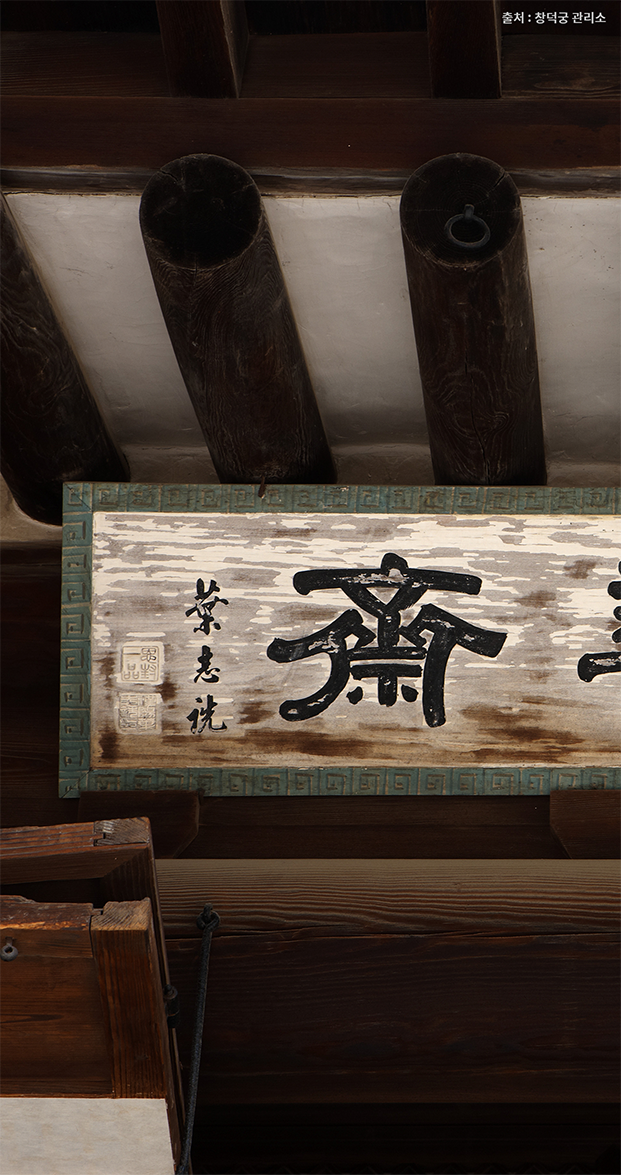 출처 : 창덕궁 관리소
齋
葉志詵